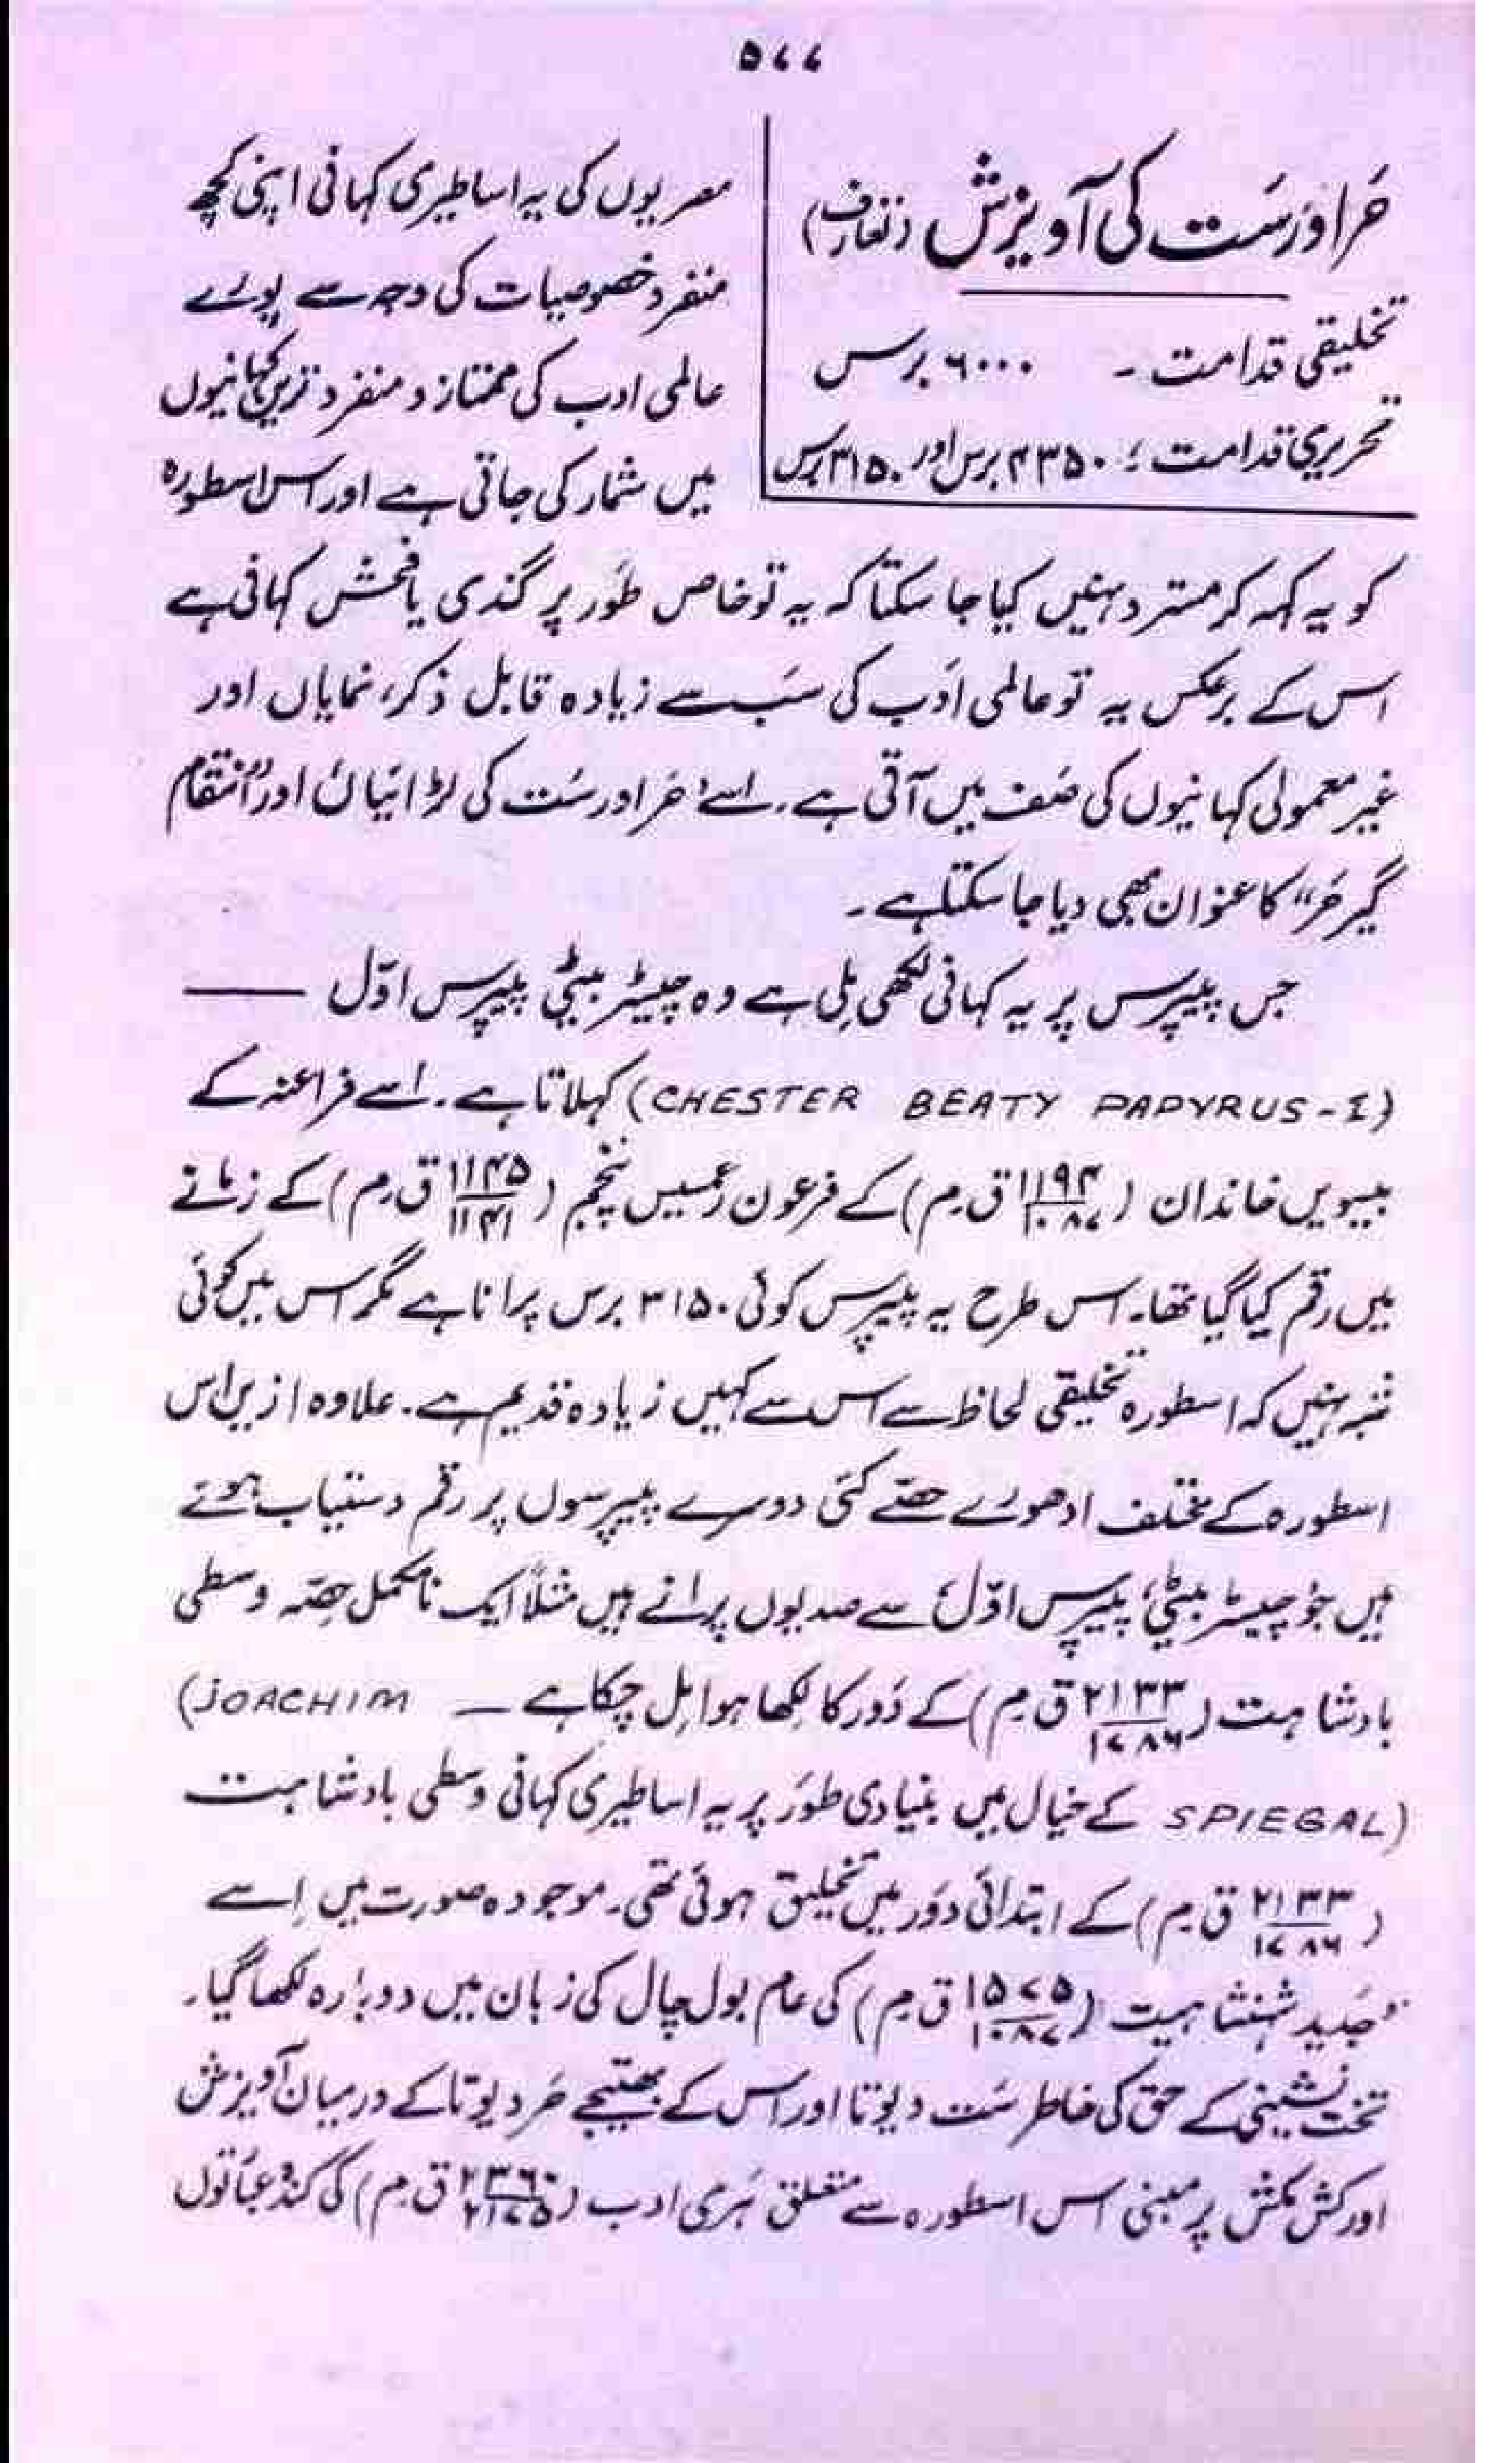 ۵۷۷
حَر اور سَت کی آویزش (تعارف)
تخلیقی قدامت ۔ ۶۰۰۰ برس
تحریری قدامت ؛ ۴۳۵۰ برس اور ۳۱۵۰ برس
مصریوں کی یہ اساطیری کہانی اپنی کچھ
منفرد خصوصیات کی وجہ سے پورے
عالمی ادب کی ممتاز و منفرد ترین کہانیوں
میں شمار کی جاتی ہے اور اس اسطورہ
کو یہ کہہ کر مسترد نہیں کیا جا سکتا کہ یہ تو خاص طَور پر گندی یا فحش کہانی ہے
اس کے برعکس یہ تو عالمی ادَب کی سَب سے زیادہ قابل ذکر، نمایاں اور
غیر معمولی کہانیوں کی صَف میں آتی ہے۔ اسے "حَر اور سَت کی لڑائیاں" اور "انتقام
گیر حَر" کا عنوان بھی دیا جا سکتا ہے ۔
جس پیپرس پر یہ کہانی لکھی مِلی ہے وہ چیسٹر بیٹی پیپرس اوّل ——
(CHESTER BEATY PAPYRUS-I) کہلاتا ہے۔ اسے فراعنہ کے
بیسویں خاندان (۱۱۹۴/۱۰۸۷ ق۔م) کے فرعون رعمسیس پنجم (۱۱۴۵/۱۱۴۱ ق۔م) کے زمانے
میں رقم کیا گیا تھا۔ اس طرح یہ پیپرس کوئی ۳۱۵۰ برس پرانا ہے مگر اس میں کوئی
شبہ نہیں کہ اسطورہ تخلیقی لحاظ سے اس سے کہیں زیادہ قدیم ہے۔ علاوہ ازیں اس
اسطورہ کے مختلف ادھورے حصّے کئی دوسرے پیپرسوں پر رقم دستیاب ہوئے
ہیں جو 'چیسٹر بیٹی' پیپرس اوّل' سے صدیوں پرانے ہیں مثلاً ایک نامکمل حِصّہ وسطی
بادشاہت (۲۱۳۳/۱۷۸۶ ق م) کے دَور کا لِکھا ہوا مِل چکا ہے — (JOACHIM
SPIEGAL) کے خیال میں بنیادی طَور پر یہ اساطیری کہانی وسطی بادشاہت
(۲۱۳۳/۱۷۸۶ ق م) کے ابتدائی دوَر میں تخلیق ہوئی تھی۔ موجودہ صورت میں اِسے
جَدید شہنشاہیت (۱۵۷۵/۱۰۸۷ ق م) کی عام بول چال کی زبان میں دوبارہ لکھا گیا۔
تخت نشینی کے حق کی خاطر سَت دیوتا اور اس کے بھتیجے حَر دیوتا کے درمیان آویزش
اور کش مکش پر مبنی اس اسطورہ سے متعلق ہَرمی ادب (۲۳۶۰/۲۱۷۵ ق م) کی کئی عبَاتوں